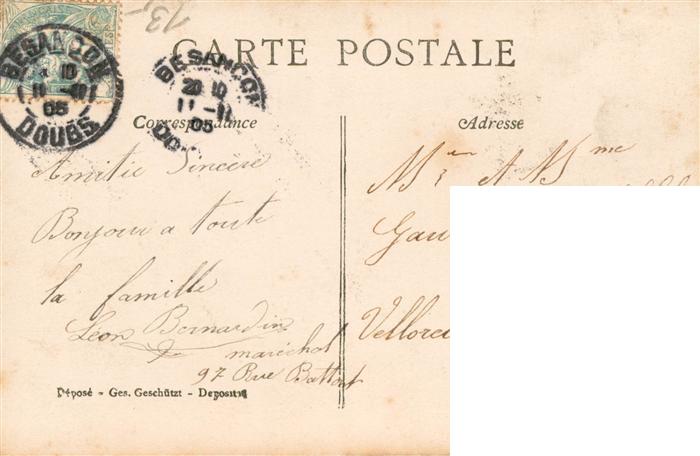 13-
CARTE POSTALE
BESANÇON
DOUBS
BESANÇON
20 10
11 - 11
05
Correspondance
Adresse
Amitié Sincère
Bonjour a toute
la famille
Léon Bernardin
maréchal
97 Rue Battant
Mr et Mme
Gau
Vellorei
Déposé - Ges. Geschützt - Deposit